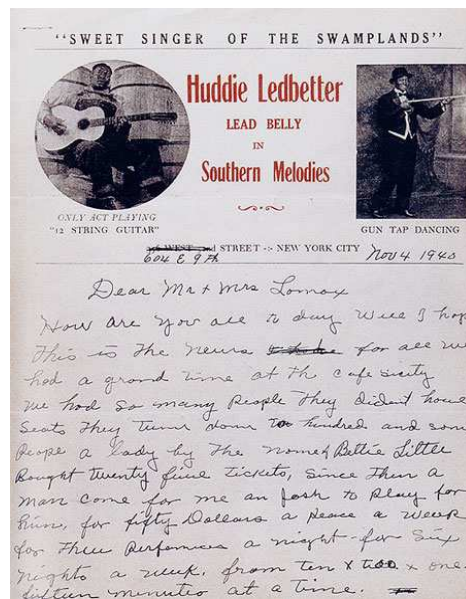 "SWEET SINGER OF THE SWAMPLANDS"
Huddie Ledbetter
LEAD BELLY
IN
Southern Melodies
ONLY ACT PLAYING
"12 STRING GUITAR"
GUN TAP DANCING
WEST STREET -:- NEW YORK CITY
604 E 9th
Nov 4 1940
Dear Mr + Mrs Lomax
How are you all to day Well I hope
This is The News for all we
had a grand time at the Cafe
we had So many People They dident have
Seats They turn down hundred and some
Peope a lady by The Name of Bettie Little
Bought twenty five tickets, Since Then a
man come for me an Josh to Play for
him, for fifty Dollars a Peace a Week
for Three a night for Six
nights a week. from ten one
fifteen minutes at a time.